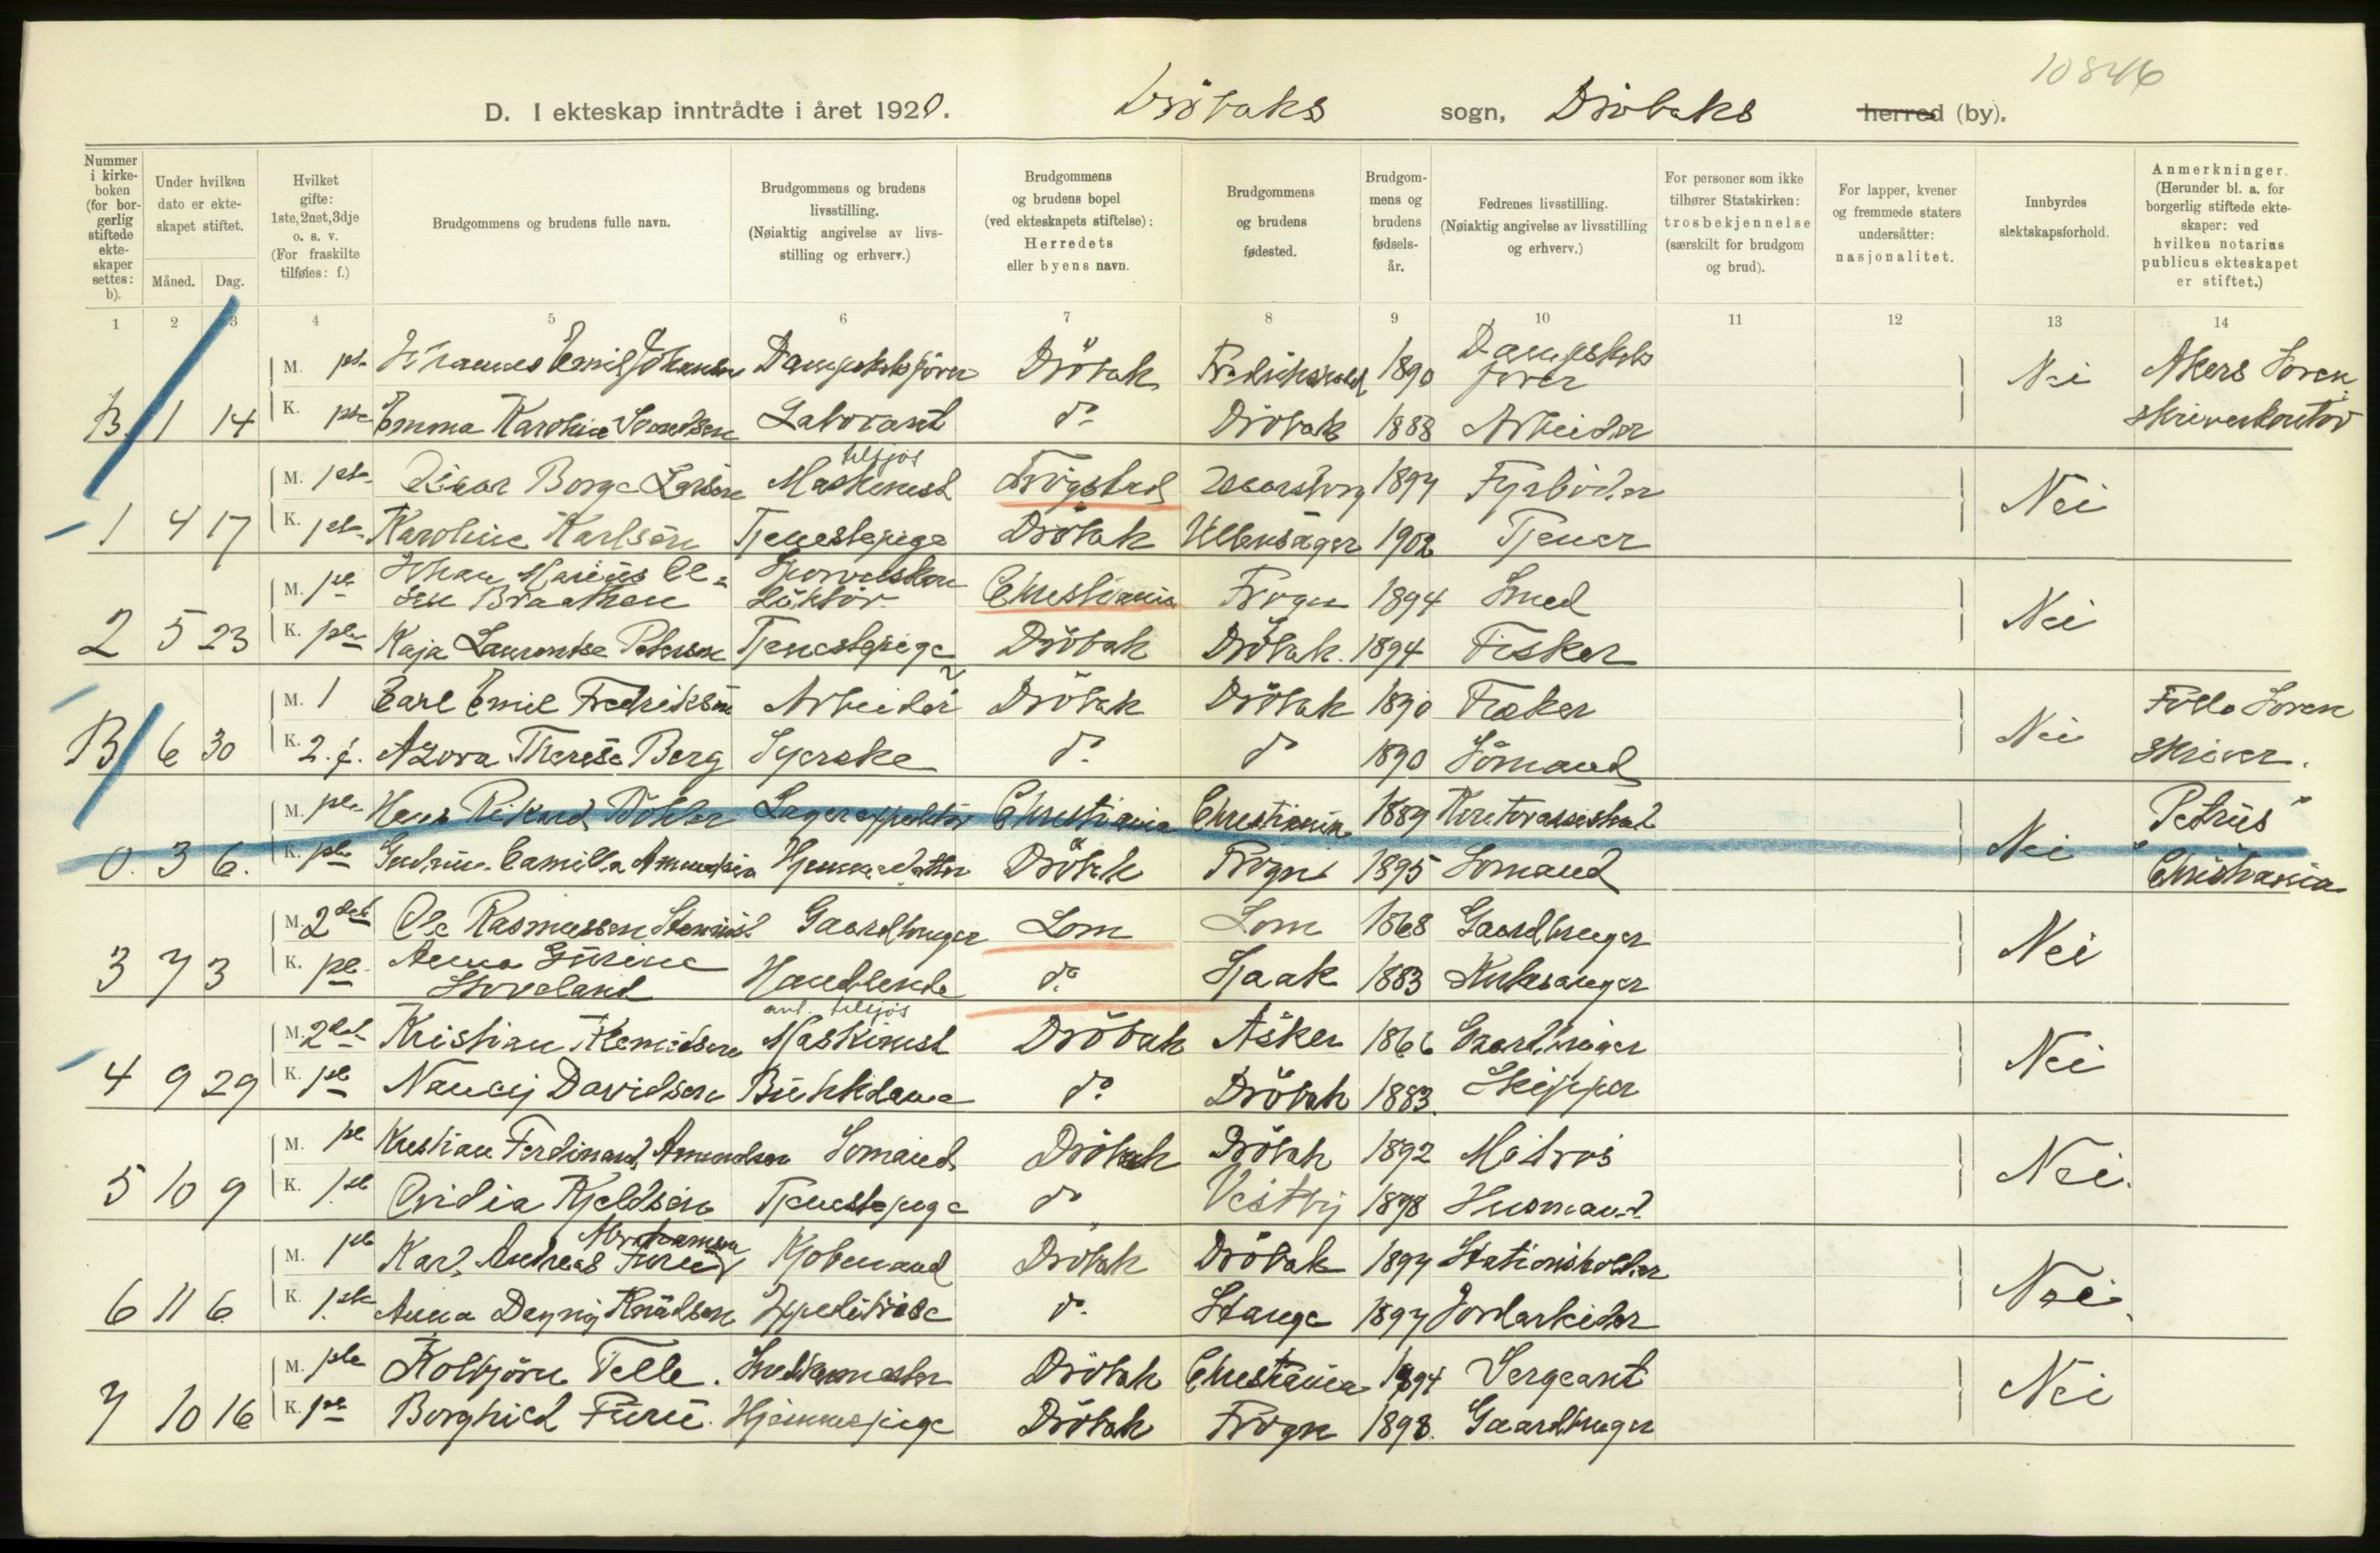 10846
D. I ekteskap inntrådte i året 1920. Dröbaks sogn, Dröbaks herred (by).
Nummer i kirkeboken (for borgerlig stiftede ekteskaper settes: b).
Under hvilken dato er ekteskapet stiftet.
Måned. Dag.
Hvilket gifte: 1ste, 2net, 3dje o. s. v. (For fraskilte tilføies: f.)
Brudgommens og brudens fulle navn.
Brudgommens og brudens livsstilling. (Nøiaktig angivelse av livsstilling og erhverv.)
Brudgommens og brudens bopel (ved ekteskapets stiftelse): Herredets eller byens navn.
Brudgommens og brudens fødested.
Brudgommens og brudens fødselsår.
Fedrenes livsstilling. (Nøiaktig angivelse av livsstilling og erhverv.)
For personer som ikke tilhører Statskirken: trosbekjennelse (særskilt for brudgom og brud).
For lapper, kvener og fremmede staters undersåtter: nasjonalitet.
Innbyrdes slektskapsforhold.
Anmerkninger. (Herunder bl. a. for borgerlig stiftede ekteskaper: ved hvilken notarius publicus ekteskapet er stiftet.)
1 2 3 4 5 6 7 8 9 10 11 12 13 14
M. Johannes Emil Johansen Dröbak Fredrikshald 1890 Dampskibsförer Nei Akers Soren
B. 1 14 K. Emma Karoline Laborant Dröbak 1888 Arbeider skriverkontor
M. Oscar Borge Larsen Maskinist tilsjös Trögstad 1897 Fyrböder Nei
1 4 17 K. Karoline Karlsen Tjenestepige Dröbak Ullensager 1902 Tjener
M. Johan Marius Olsen Braathen Christiania Frogn 1894 Smed Nei
2 5 23 K. Kaja Laurentse Petersen Tjenestepige Dröbak Dröbak. 1894 Fisker
M. 1 Carl Emil Fredriksen Arbeider Dröbak Dröbak 1890 Fisker Nei Follo Soren
B 6 30 K. 2. f. Azora Therese Berg Syerske do do 1890 Sömand skriver.
M. Hans Rikard Lagerexpeditör Christiania Christiania 1889 Kontorassistent Nei Petrus
0. 3 6. K. Gudrun Camilla Amundsen Hjemmedatter Dröbak Frogn 1895 Sömand Christiania
M. 2det Ole Rasmussen Gaardbruger Lom Lom 1868 Gaardbruger Nei
3 7 3 K. Anna Gurine Handlende do. Skjaak 1883 Kirkesanger
M. 2det Kristian Maskinist tilsjös Dröbak Asker 1866 Gaardbruger Nei
4 9 29 K. Nancy Davidsen do. Dröbak 1883. Skipper
M. Kristian Ferdinand Amundsen Sömand Dröbak Dröbak 1892 Matros Nei.
5 10 9 K. Ovidia Kjeldsen Tjenestepige do Vestby 1898 Husmand
M. Karl Andreas Abrahamsen Furu Kjöbmand Dröbak Dröbak 1897 Stationsholder Nei.
6 11 6 K. Anna Dagny Knudsen Expeditrise do. Stange 1897 Jordarbeider
M. Kolbjörn Telle. Dröbak Christiania 1894 Sergeant Nei
7 10 16 K. Borghild Furu. Hjemmepige Dröbak Frogn 1898. Gaardbruger